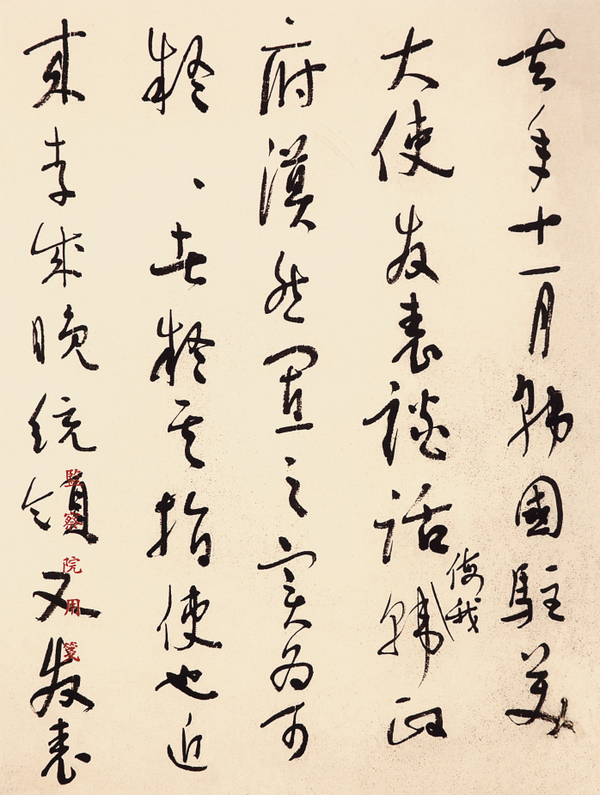 去年十一月韓國駐美
大使發表談話侮我韓政
府漠然置之实为可
疑、疑其指使也近
來李承晚統領又發表
監察院用箋